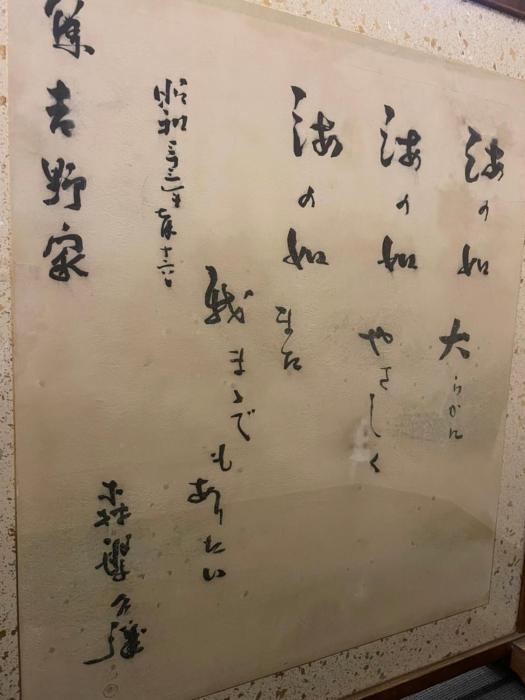 海の如 大らかに
海の如 やさしく
海の如 また
我まゝでもありたい
昭和三十三年七月十六日
吉野家